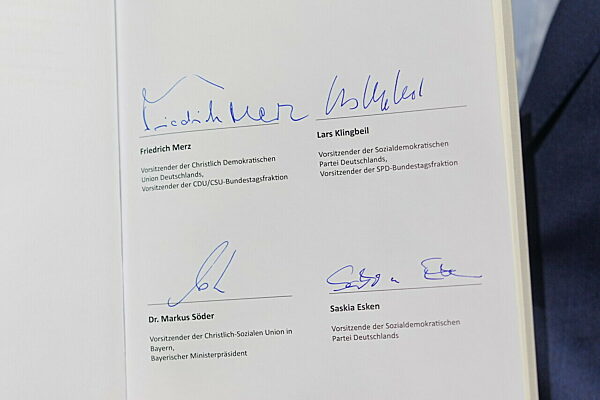 Friedrich Merz
Friedrich Merz
Vorsitzender der Christlich Demokratischen
Union Deutschlands,
Vorsitzender der CDU/CSU-Bundestagsfraktion
Lars Klingbeil
Vorsitzender der Sozialdemokratischen
Partei Deutschlands,
Vorsitzender der SPD-Bundestagsfraktion
Dr. Markus Söder
Vorsitzender der Christlich-Sozialen Union in
Bayern,
Bayerischer Ministerpräsident
Saskia Esken
Vorsitzende der Sozialdemokratischen
Partei Deutschlands